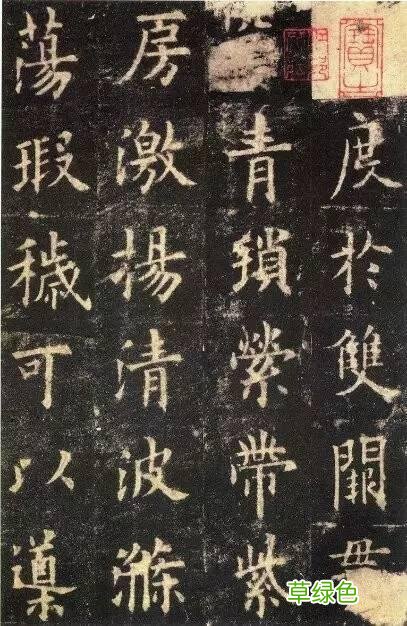 度於雙闕
青瑣縈帶紫
房激揚清波滌
蕩瑕穢可以導
草绿色